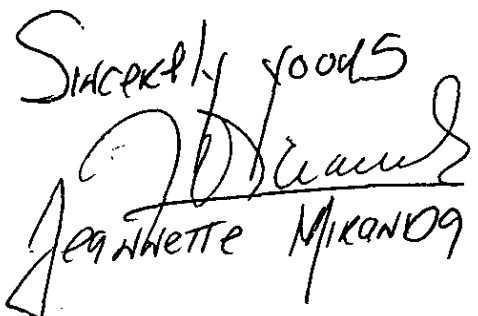 Sincerely yoours
Jeannette Miranda